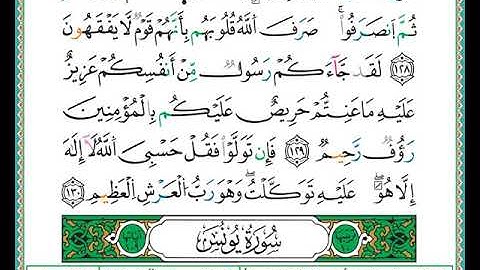 ثُمَّ اَنصَرَفُواْۚ صَرَفَ اَللَّهُ قُلُوبَهُم بِأَنَّهُمْ قَوْمٌ لَّا يَفْقَهُونَ
١٢٨ لَقَدْ جَآءَكُمْ رَسُولٌ مِّنْ أَنفُسِكُمْ عَزِيزٌ
عَلَيْهِ مَا عَنِتُّمْ حَرِيصٌ عَلَيْكُم بِالْمُؤْمِنِينَ
رَءُوفٌ رَّحِيمٌ ١٢٩ فَإِن تَوَلَّوْاْ فَقُلْ حَسْبِيَ اَللَّهُ لَآ إِلَٰهَ
إِلَّا هُوَۖ عَلَيْهِ تَوَكَّلْتُۖ وَهُوَ رَبُّ اُلْعَرْشِ اِلْعَظِيمِ ١٣٠
سُورَةُ يُونُسَ